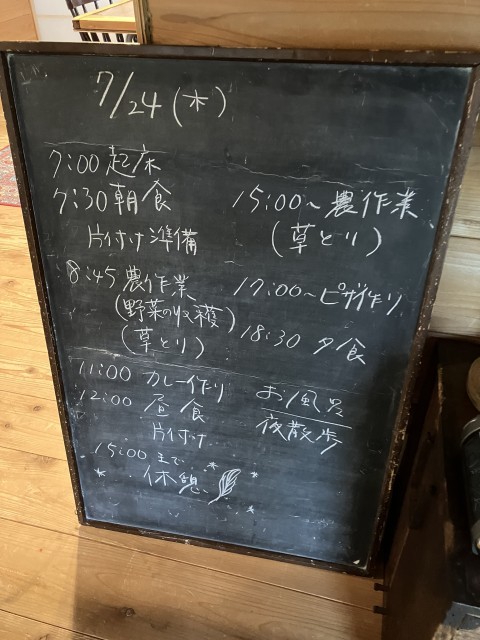 7/24(木)
7:00 起床
7:30 朝食
片付け 準備
8:45 農作業
(野菜の収穫)
(草とり)
11:00 カレー作り
12:00 昼食
片付け
15:00まで
休憩
15:00〜農作業
(草とり)
17:00〜ピザ作り
18:30 夕食
お風呂
夜散歩